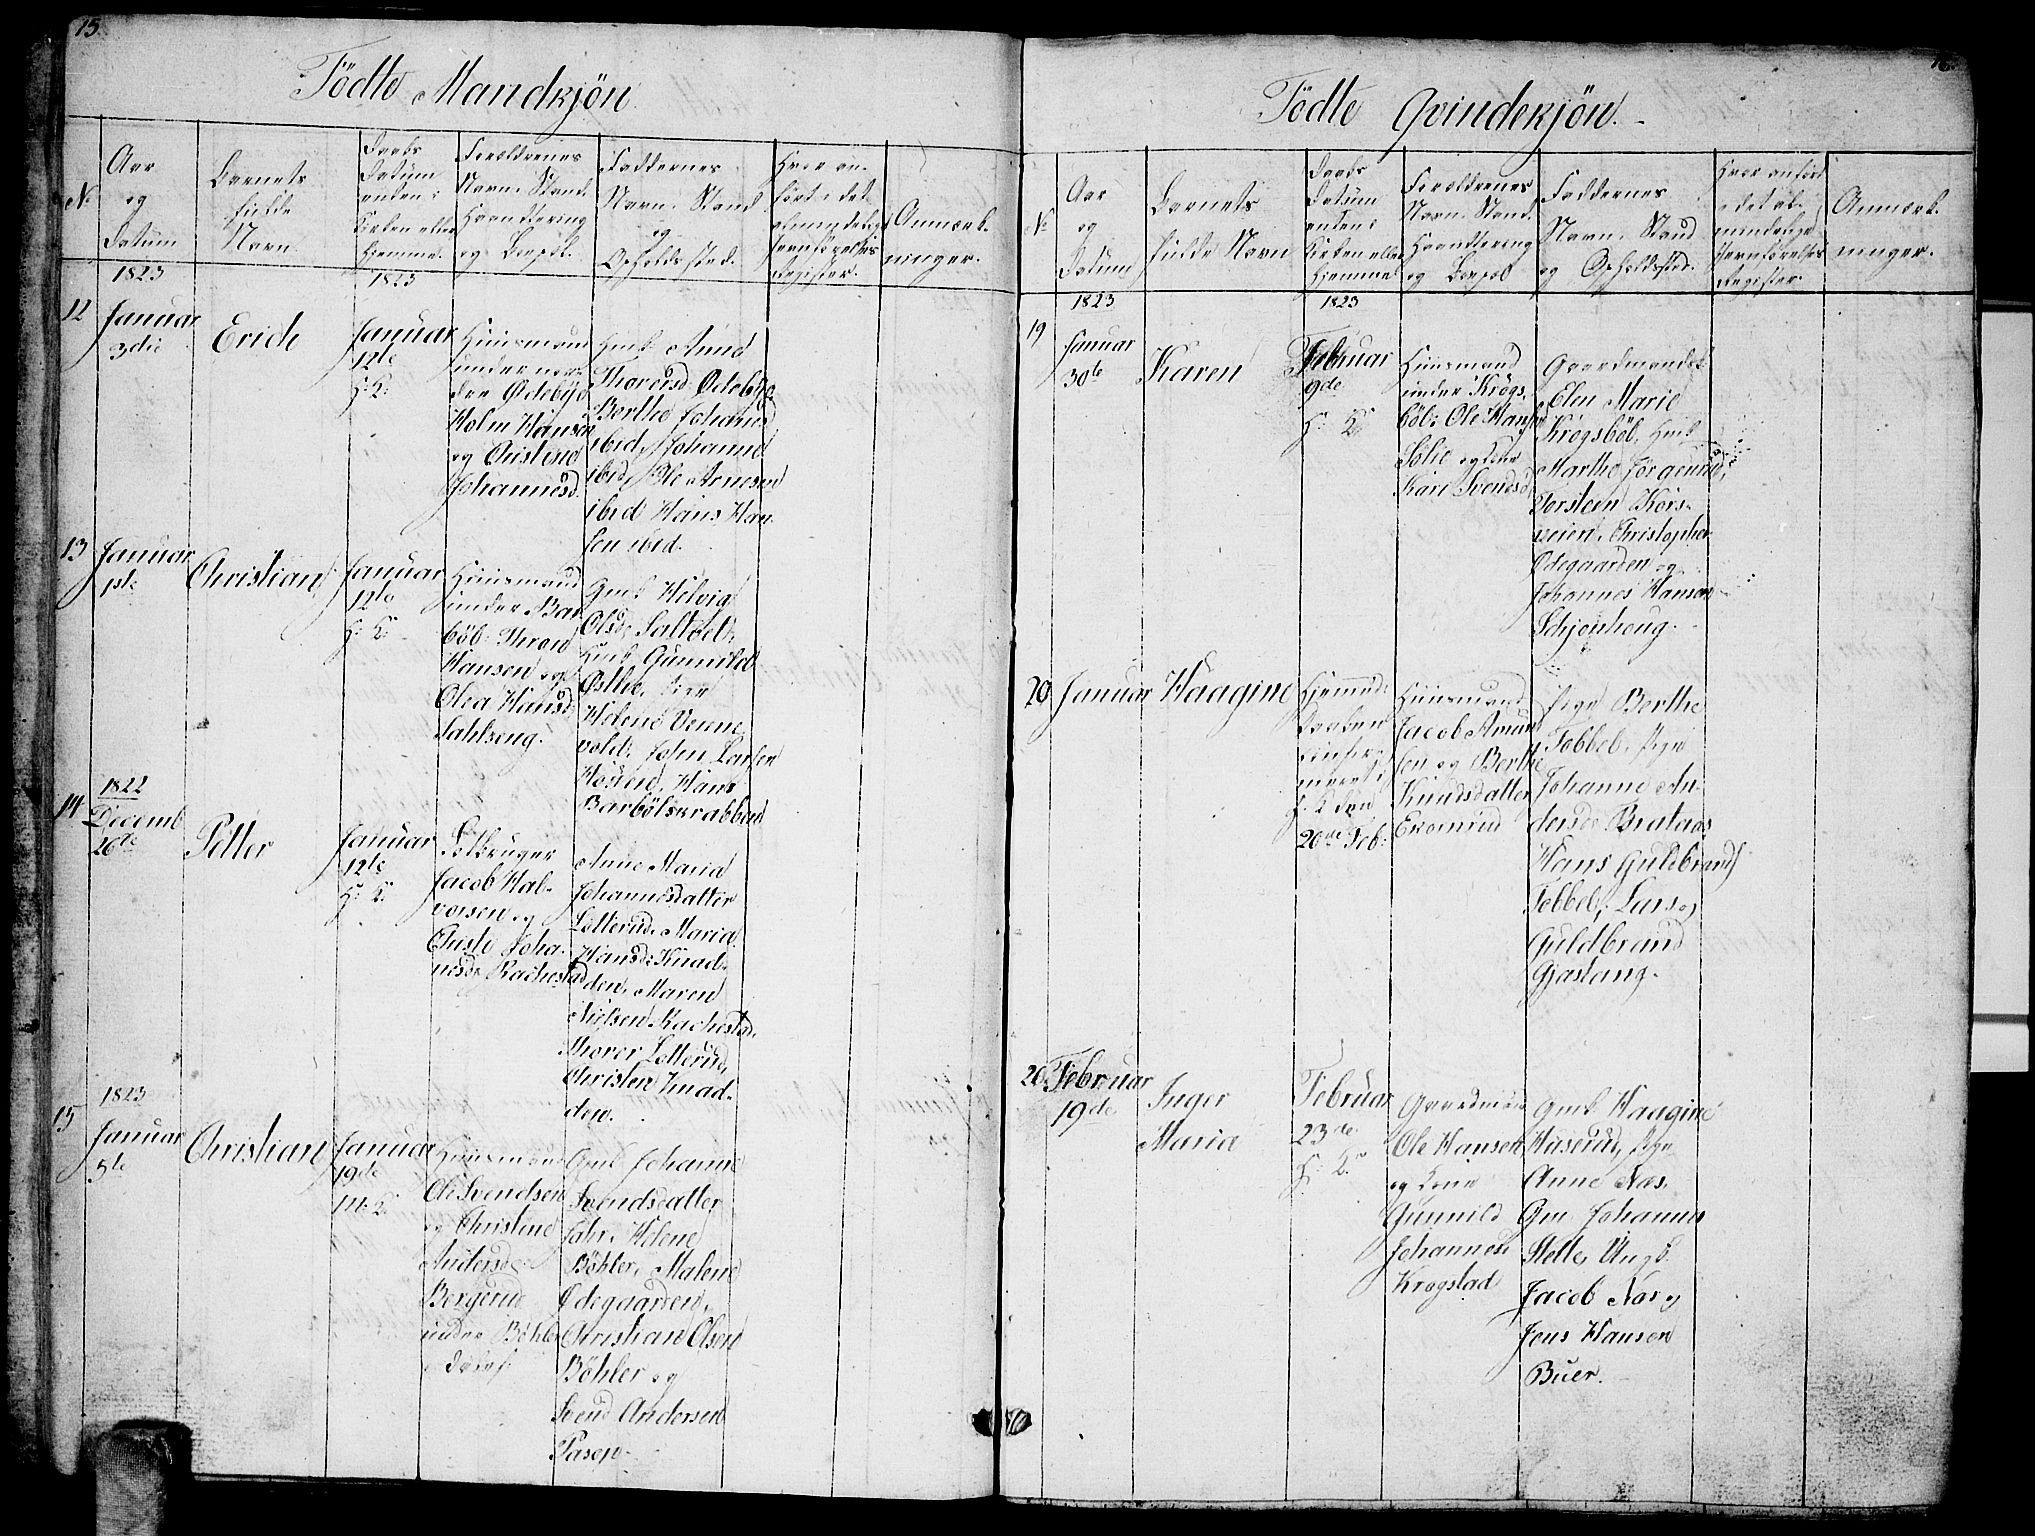 15.
Födte Mandkjön.
No
Aar
og
Datum
Barnets
fulde
Navn.
Daabs
Datum
enten i
Kirken eller
Hjemme.
Forældrenes
Navn, Stand,
Haandtering
og Bopæl.
Faddernes
Navn, Stand
og
Opholdssted.
Hvor an-
ført i det
almindelige
Jevnførelses
Register.
Anmærk-
ninger.
1823
1823
12
Januar
3die
Erich
Januar
12te
H: K:
Huusmand
under nor-
dre Ödebÿe
Holm Hansen
og Christine
Johannesd.
Gmk Anne
Thoresd. Ödebÿe
Berthe Johannesd
ibid, Johanne
ibid, Ole Arnesen
ibid Hans Han-
sen ibid.
13
Januar
1ste
Christian
Januar
12te
H: K:
Huusmand
under Bar-
böl: Thron
Hansen og
Olea Hansd:
Sahlzeng.
Gmk Helvig
Olsd: Saltbøl:
Hmk Gunnild
Østbye, Pige
Helene Venne
vold: John Larsen
Houen, Hans
Barbölskrabben
14
1822
Decemb
26de
Petter
Januar
12te
H: K:
Selbruger
Jacob Hal-
vorsen og
Christi Joha-
nesd: Rachestad
Anne Maria
Johannesdatter
Letterud, Maria
Hansd: Knad-
den, Maren
Nielsen Rachestad,
Thorer Letterud,
Christen Knad-
den.
15
1823
Januar
5te
Christian
Januar
19de
M: K:
Huusmand
Ole Svendsen
og Christine
Andersd:
Bergerud
under Böhler
Gmk Johanne
Svendsdatter
Fahr, Helene
Böhler, Malene
Ödegaarden,
Christian Olsen
Böhler og
Svend Andersen
Pasop.
16.
Födte Qvindekjön.
No
Aar
og
Datum
Barnets
fulde Navn
Daabs
Datum
enten i
Kirken eller
Hjemme
Forældrenes
Navn, Stand,
Haandtering
og Bopæl
Faddernes
Navn, Stand
og Opholdssted.
Hvor anført
i det al-
mindelige
Jevnførelses
Register
Anmærk-
ninger.
1823
1823
19
Januar
30te
Karen
Februar
9de
H: K:
Huusmand
under Krogs-
böl: Ole Hansen
Solie og Kone
Kari Svendsd
Gaardmandsk
Elen Marie
Krogsböl, Hmk
Marthe Jörgensd,
Torsten Kors-
veien, Christopher
Ödegaarden og
Johannes Hansen
Schjønhoug.
20
Januar
Haagine
Hjemme
daaben
confir-
meret i
H: K den
20de Feb:
Huusmand
Jacob Amund
sen og Berthe
Knudsdatter
Pige Berthe
Febbel, Pige
Johanne An-
dersd: Brataas
Hans Guldbrands
Febbel, Lars og
Guldbrand
Gjaslang.
20
Februar
19de
Inger
Maria
Februar
23de
H: K:
Gaardman
Ole Hansen
og Kone
Gunnild
Johannesd
Krogstad
Gmk Haagine
Huserud, Pige
Anne Næs,
Gm Johannes
Slette, Ungk.
Jacob Næs og
Jens Hansen
Buer.